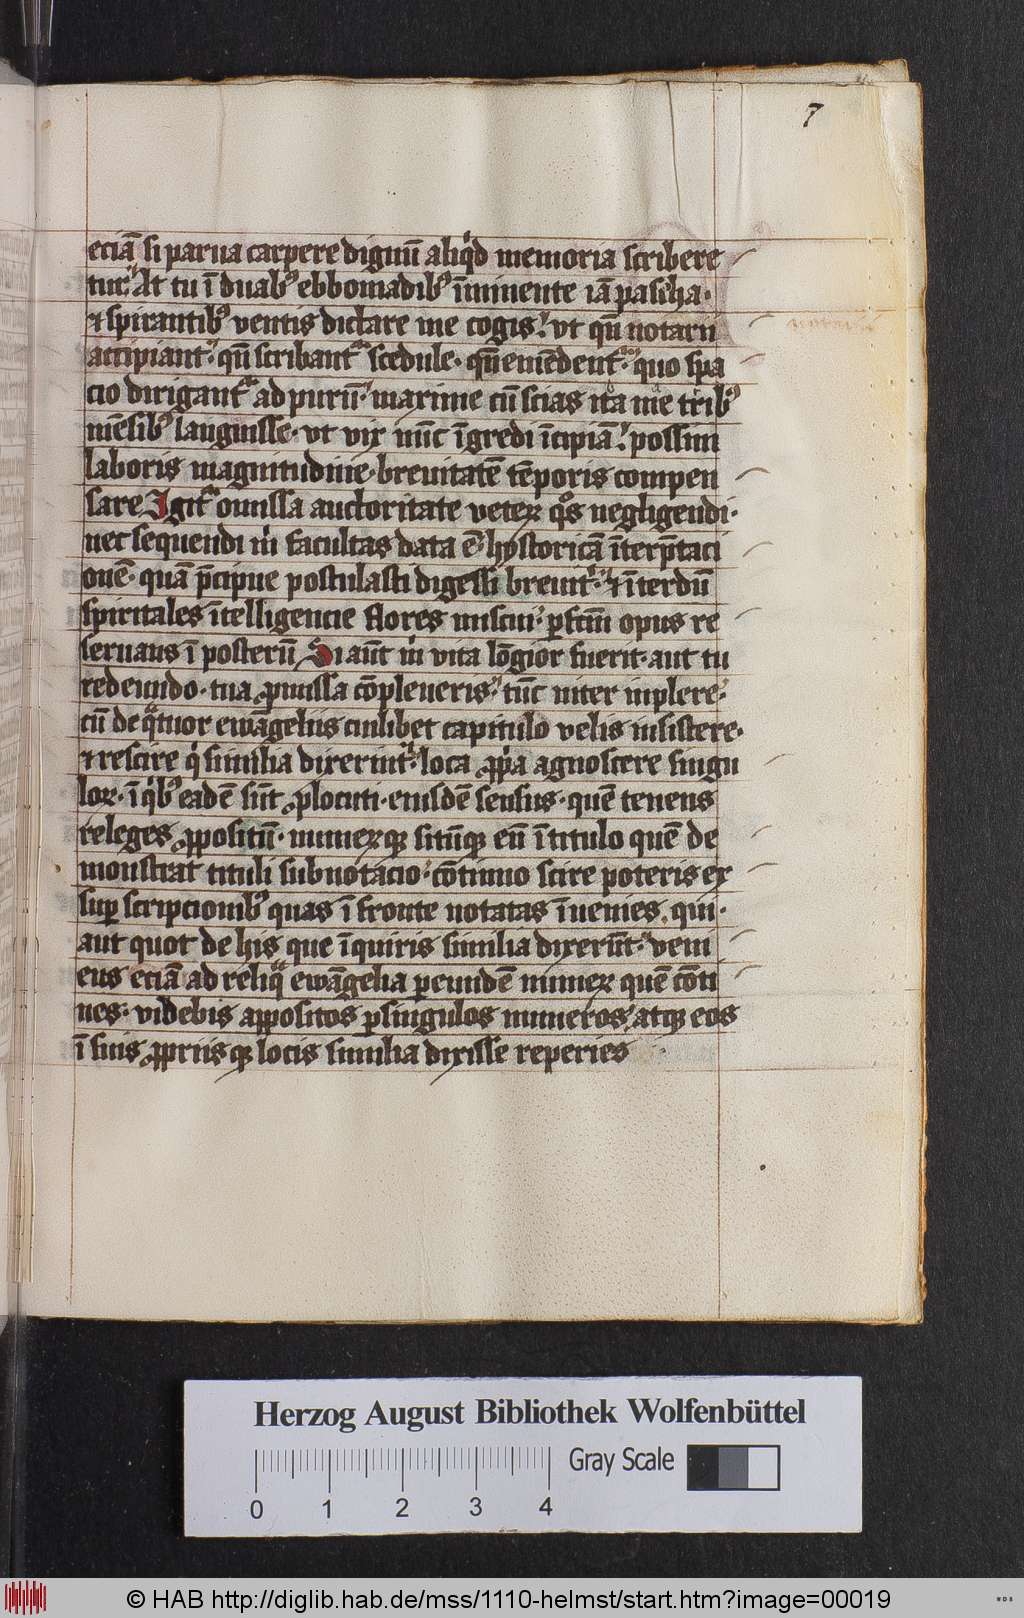 7
eciā si parua carpere dignū aliqͥd memoria scribere
tur. At tu ī duabꝰ ebbomadibꝰ īminente iā pascha.
⁊ spirantibꝰ ventis dictare me cogis. vt qn̄ notarii
accipiant. qn̄ scribantᷣ scedule. qn̄ emēdentᷣ. quo spa
cio dirigantᷣ ad purū. maxime cū scias ita me tribꝰ
mēsibꝰ languisse. vt vix nūc īgredi īcipiā. possim
laboris magnitudine. breuitatē tēporis compen
sare Igitᷣ omissa auctoritate veteꝝ qͦs negligendi.
nec sequendi mͥ facultas data ē. hystoricā īterp̄taci
onē. quā p̄cipue postulasti digessi breuitͥ. ⁊ īterdū
spiritales ītelligencie flores miscui. ꝑfctm̄ opus re
seruans ī posterū Si aūt mͥ vita lōgior fuerit. aut tu
redeundo. tua ꝓmissa cōpleueris. tūc niter inplere.
cū de qͣtuor ewāgeliis cuilibet capitulo velis insistere.
⁊ rescire qͥ similia dixerintͣ. loca ꝓpͥa agnoscere singu
loꝝ. ī qͥbꝰ eadē sūt ꝓlocuti. eiusdē sensus. quē tenens
releges ꝓpositū. numeꝝqꝫ sitūqꝫ eū ī titulo quē de
monstrat tituli subnotacio. cōtinuo scire poteris ex
suꝑ scripcionibꝰ quas ī fronte notatas īuenies. qui.
aut quot de his que īquiris similia dixerūt. veni
ens eciā ad reliqͣ ewāgelia ꝑ eundē numeꝝ quē cōti
nes. videbis appositos ꝑ singulos numeros. atqꝫ eos
ī suis ꝓpriisqꝫ locis similia dixisse reperies
Herzog August Bibliothek Wolfenbüttel
Gray Scale
0 1 2 3 4
© HAB http://diglib.hab.de/mss/1110-helmst/start.htm?image=00019